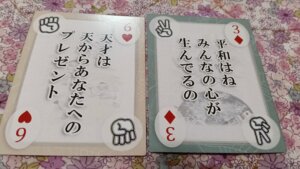 6
天才は
天からあなたへの
プレゼント
6
3
平和はね
みんなの心が
生んでるの
3